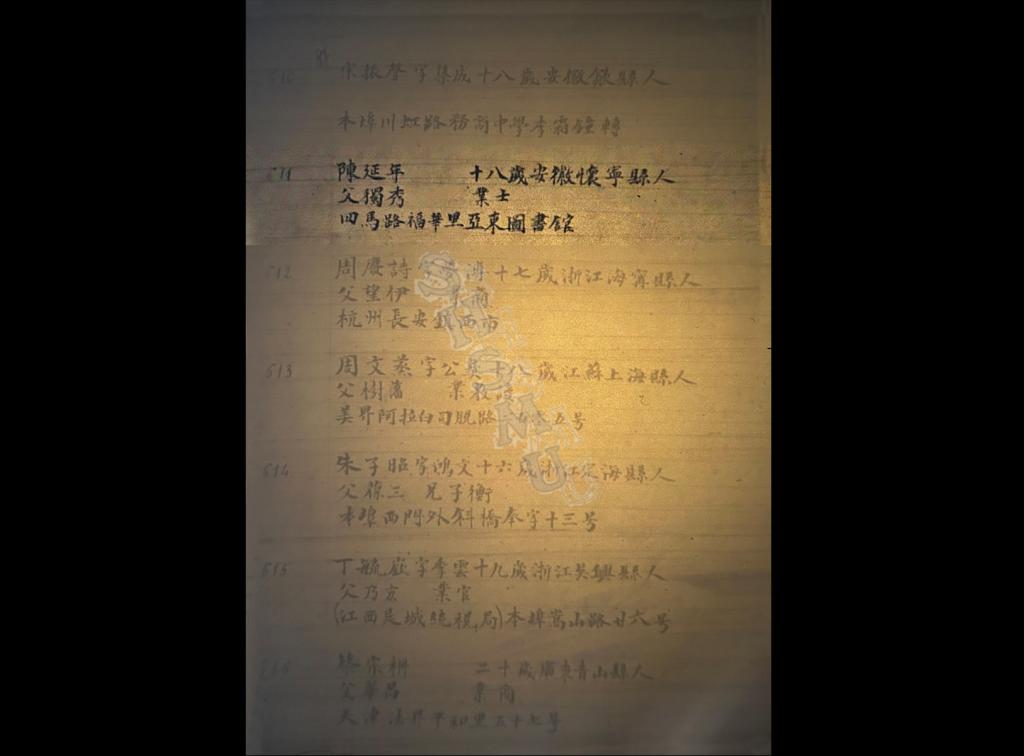 宋振聲字集成十八歲安徽歙縣人
本埠川虹路務商中學李 轉
611 陳延年 十八歲安徽懷寧縣人
父獨秀 業士
四馬路福華里亞東圖書館
612 周慶詩字 濤十七歲浙江海寧縣人
父望伊 業商
杭州長安鎮西市
613 周文 字公 十八歲江蘇上海縣人
父樹藩 業教
美界阿拉白司脫路 五号
614 朱子昭字鴻文十六歲浙江定海縣人
父葆三 兄子衡
本埠西門外斜橋奉字十三号
615 丁毓 字季雲十九歲浙江吳興縣人
父乃 業官
(江西 城統稅局)本埠嵩山路廿六号
616 宗耕 二十歲廣東香山縣人
父華昌 業商
天津法界平和里五十七号
SHSMU